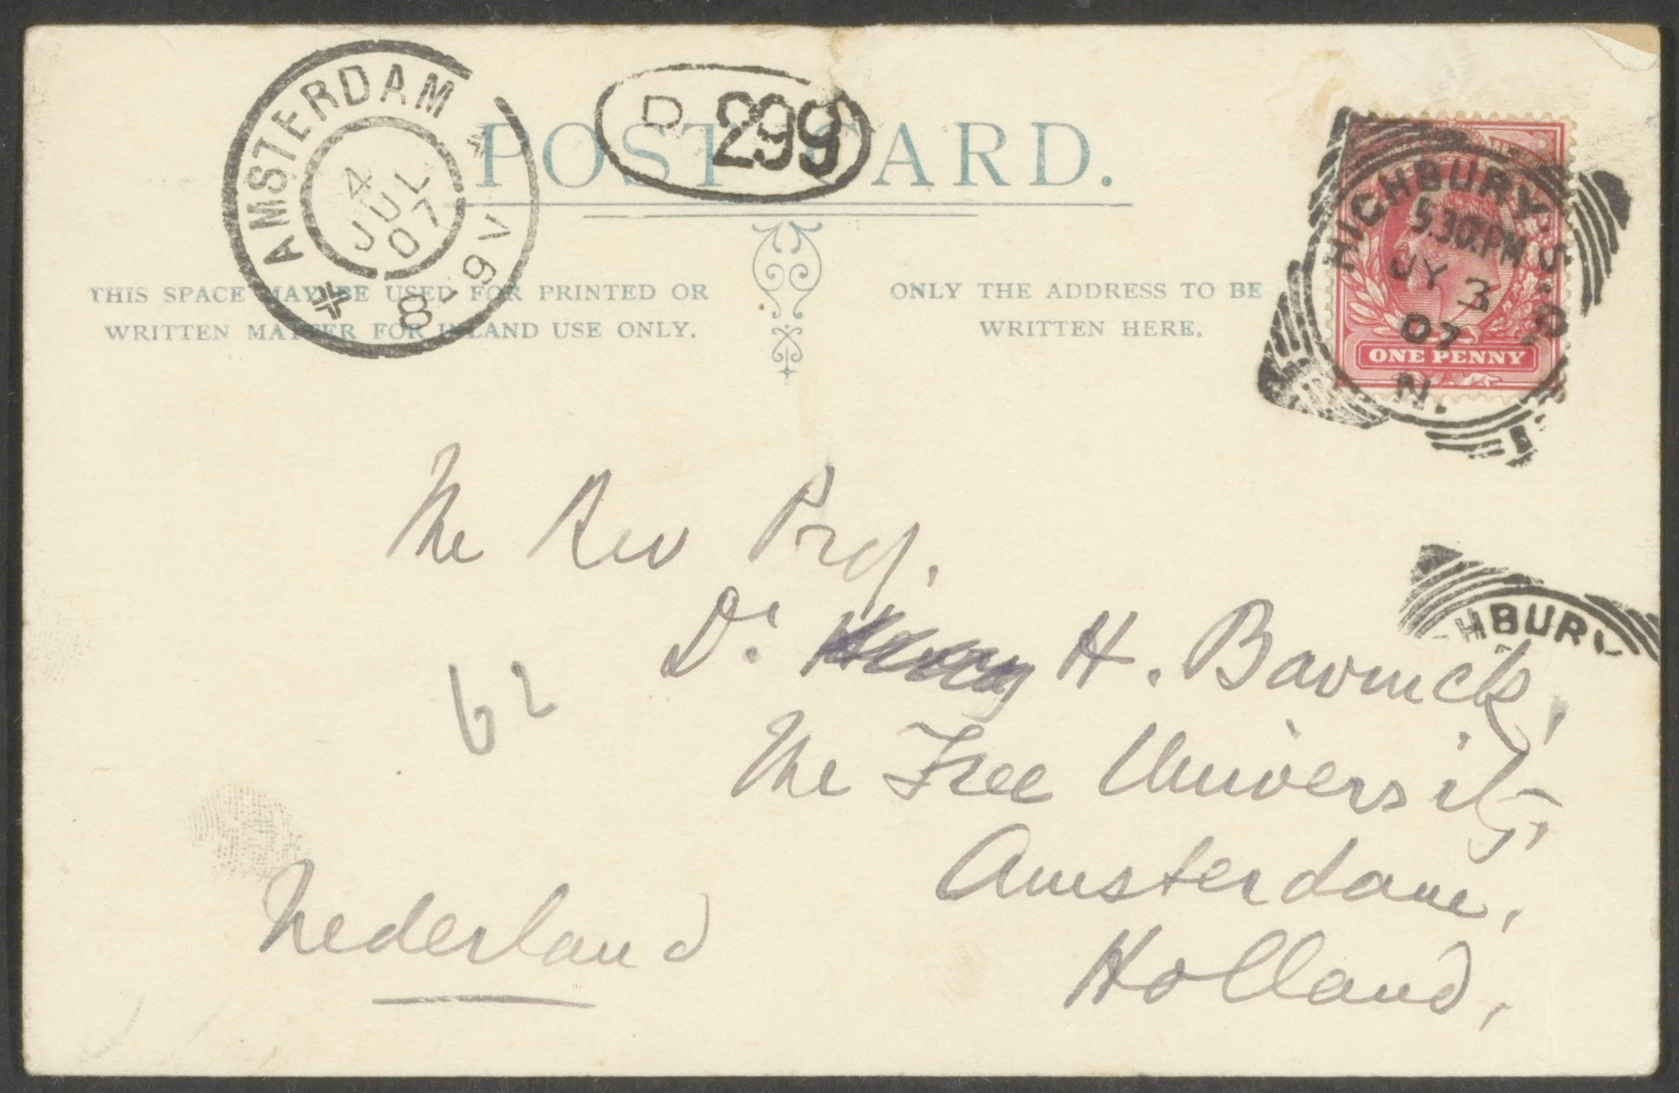 AMSTERDAM
4
JUL
07
8-9V
D 299
POST CARD.
THIS SPACE MAY BE USED FOR PRINTED OR
WRITTEN MATTER FOR INLAND USE ONLY.
ONLY THE ADDRESS TO BE
WRITTEN HERE.
HIGHBURY.S.O
5.30.PM
JY 3
07
N.
ONE PENNY
The Rev Prof.
Dr H. Bavinck,
HBURY
The Free University,
Amsterdam,
Holland,
62
Nederland